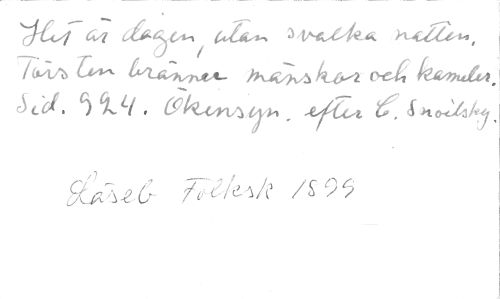 Het är dagen, utan svalka natten,
Törsten bränner mänskor och kameler.
Sid. 924. Ökensyn. efter C. Snoilsky.
Läseb Folksk 1899